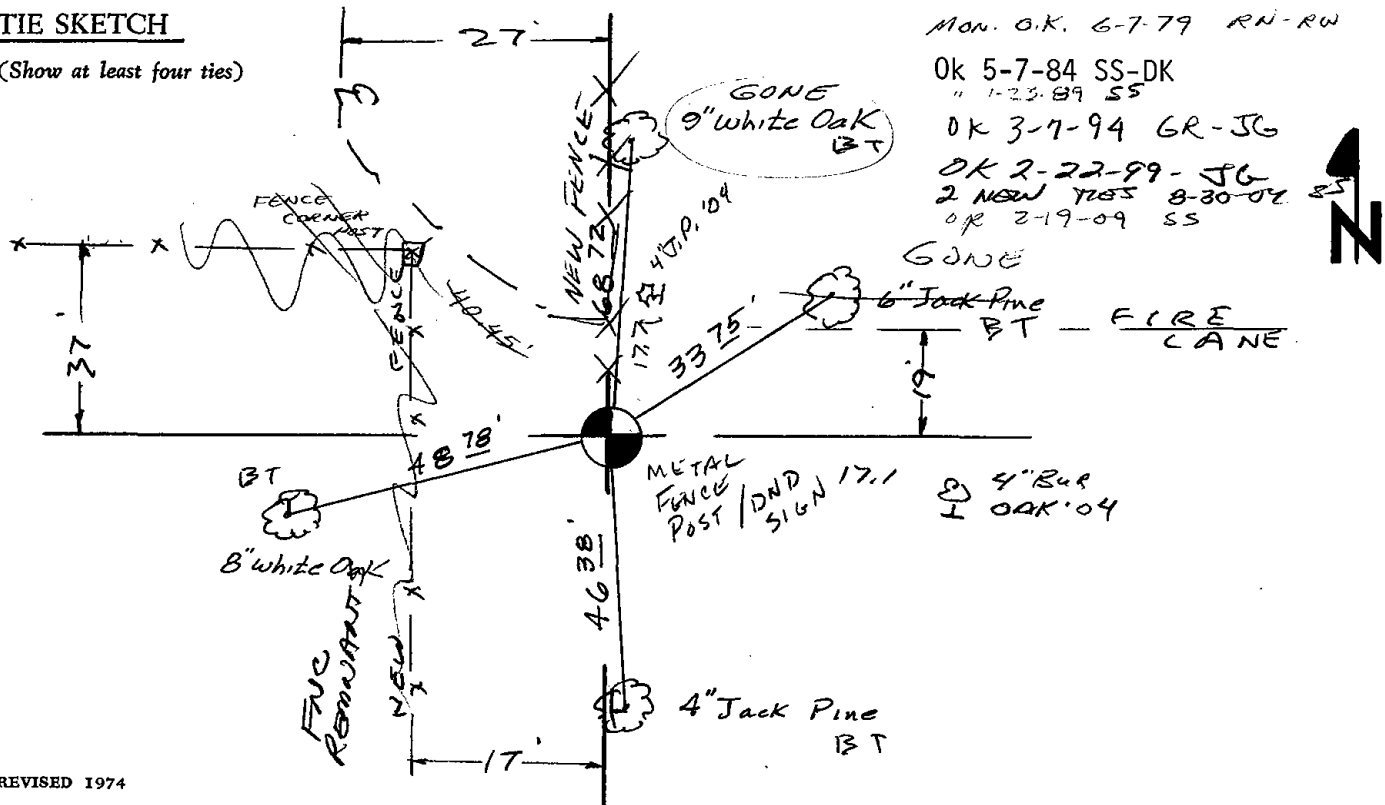 TIE SKETCH
(Show at least four ties)
27'
MON. O.K. 6-7-79 RN-RW
Ok 5-7-84 SS-DK
" 1-23-89 SS
OK 3-7-94 GR-JG
OK 2-22-99 - JG
2 NEW TIES 8-30-04 SS
OK 2-19-09 SS
N
GONE
9" White Oak
BT
NEW FENCE
68 72'
17.7
4" J.P. '04
FENCE
CORNER
POST
FENCE
40.45'
37'
GONE
6" Jack Pine
BT
FIRE
LANE
33 75'
19'
48 78'
BT
8" white Oak
METAL
FENCE
POST / DND
SIGN
17.1
4" BUR
OAK '04
46 38'
FNC
REMNANTS
NEW
4" Jack Pine
BT
17'
REVISED 1974